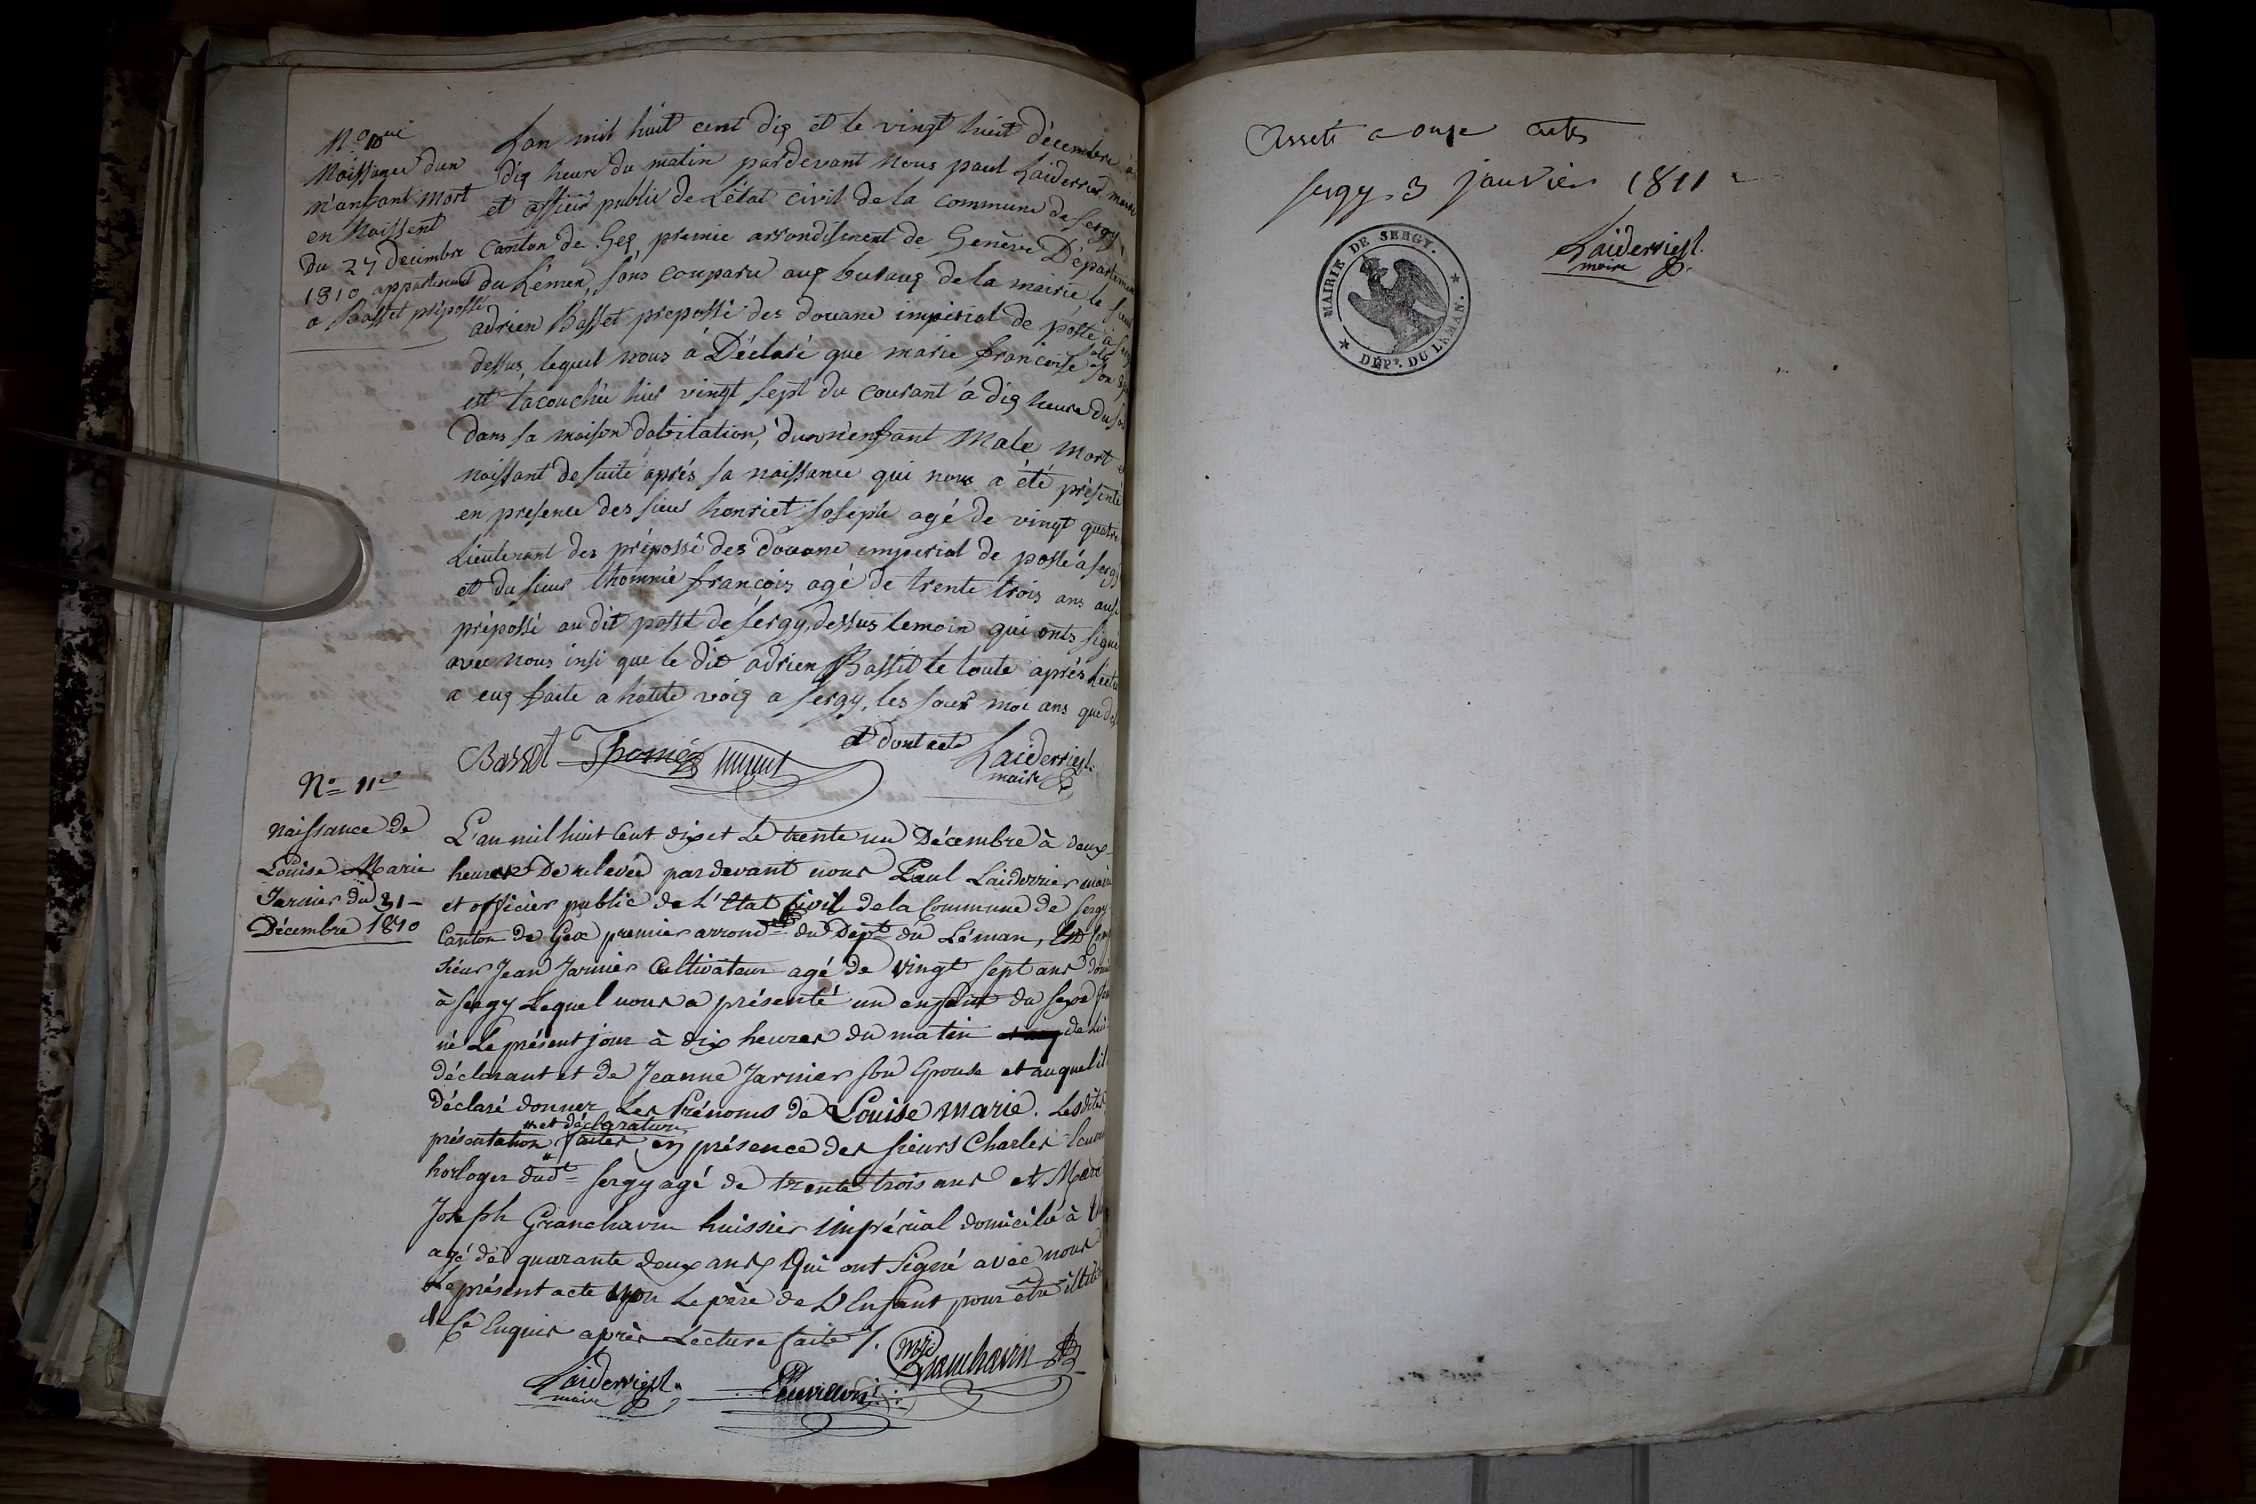 N.º 10me
Naissance d'un
n'anfant mort
en naissent
du 27 decembre
1810 appartenent
a Basset préposé
Lan mil huit cent dix et le vingt huit décembre à
dix heure du matin pardevant nous paul Laiderrier maire
et officier public de L'état civil de la commune de Sergy
canton de Gex premie arrondisment de Genève Départemen
du Léman, sons comparu aux buraux de la mairie le sieur
adrien Basset preposé des douane imperial de poste à sergy
dessus, lequel nous à Déclaré que marie francoise son
est tacouchée hier vingt sept du courant à dix heure du soir
dans sa maison dabitation, d'un n'enfant Male mort e
naissant desuite après sa naissance qui nous a été présenté
en presence des sieur henriet joseph agé de vingt quatre
Lieutenant des préposé des douane imperial de posté à sergy
et du sieur thommé francois agé de trente trois ans aussi
préposé au dit posté de sergy, dessus temoin qui onts signé
avec nous insi que le dit adrien Bassit le toute aprés Lectu
a eux faite a hatite voix a sergy, les jour moi ans que de
et dont acte
Basset Thomé Laiderrier
maire
Nº 11e
naissance de
Louise Marie
Jarnier du 31
Décembre 1810
L'an mil huit Cent dix et Le trente un Décembre à deux
heures De relevée par devant nous Paul Laiderrier maire
et officier public de L'Etat Civil de la Commune de Sergy
Canton de Gex premier arrondt du Dept du Léman, Est Com
Sieur Jean Jarnier Cultivateur agé de vingt sept ans domi
à Sergy Lequel nous a présenté un enfant du sexe fem
né Le présent jour à dix heures du matin de Lui
déclarant et de Jeanne Jarnier son Epouse et auquel il
déclaré donner Les Prénoms de Louise Marie. Les dites
présentation et déclaration faites en présence des sieurs Charles
horloger dudt Sergy agé de trente trois ans et Marc
Joseph Granchavin huissier impérial domicilié à
agé de quarante deux ans, Qui ont Signé avec nous
Le présent acte non Le père de L'Enfant pour être illitéré
de Ce Enquis après Lecture faite /.
Laiderrier
maire
MJ Granchavin
Arreté a onze actes
sergy 3 janvier 1811
Laiderrier
maire
MAIRIE DE SERGY.
DÉPT. DU LÉMAN.